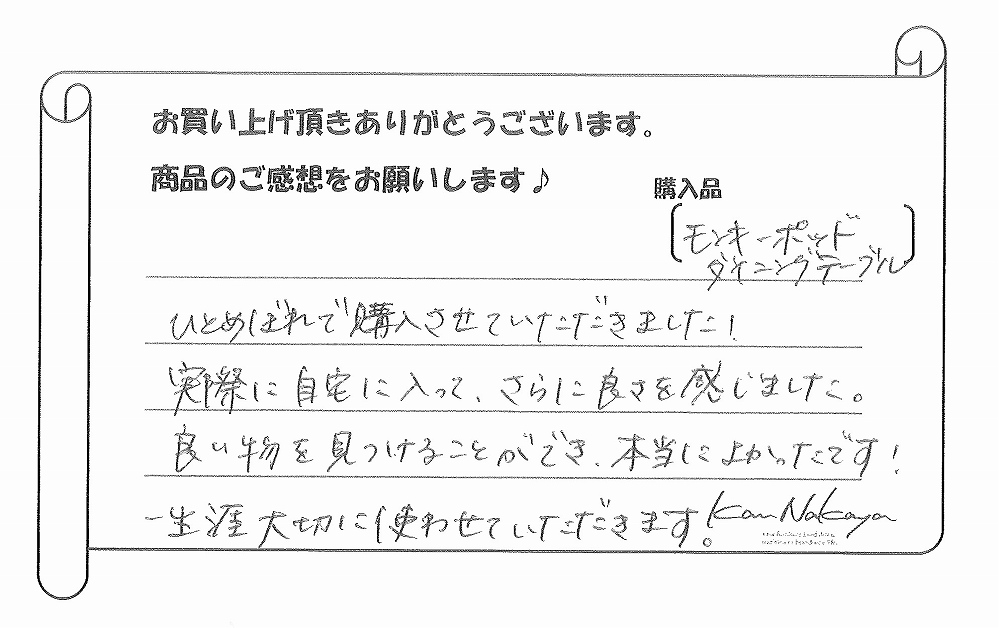 お買い上げ頂きありがとうございます。
商品のご感想をお願いします♪
購入品
モンキーポッド
ダイニングテーブル
ひとめぼれで購入させていただきました!
実際に自宅に入って、さらに良さを感じました。
良い物を見つけることができ、本当によかったです!
一生涯大切に使わせていただきます。
Kan Nakaya